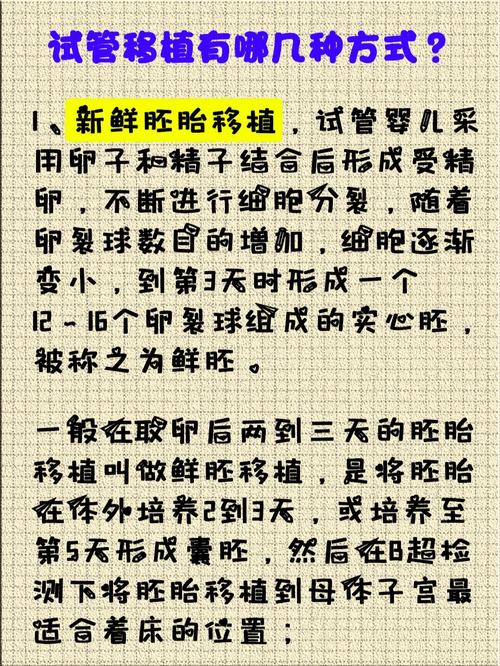 试管移植有哪几种方式？
1、新鲜胚胎移植，试管婴儿采
用卵子和精子结合后形成受精
卵，不断进行细胞分裂，随着
卵裂球数目的增加，细胞逐渐
变小，到第3天时形成一个
12-16个卵裂球组成的实心胚，
被称之为鲜胚。
一般在取卵后两到三天的胚胎
移植叫做鲜胚移植，是将胚胎
在体外培养2到3天，或培养至
第5天形成囊胚，然后在B超检
测下将胚胎移植到母体子宫最
适合着床的位置；